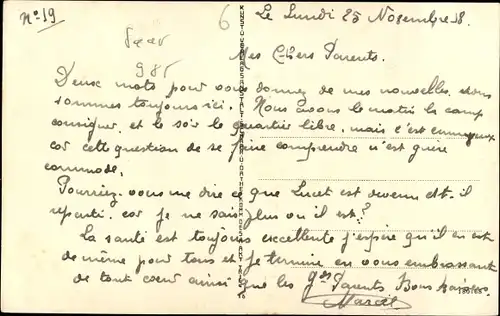 N° 19
6
Le Lundi 25 Novembre 18.
Saar
985
Mes Chers Parents.
Deux mots pour vous donner de mes nouvelles, nous
sommes toujours ici. Nous avons le matin le camp
consigner, et le soir le quartier libre, mais c'est ennuyeux
car cette question de se faire comprendre n'est guère
commode.
Pourriez-vous me dire ce que Lucet est devenu est-il
reparti, car je ne sais plus ou il est?
La santé est toujours excellente j'espère qu'il en est
de même pour tous et je termine en vous embrassant
de tout cœur ainsi que les gds Parents. Bons baisers
Marcel